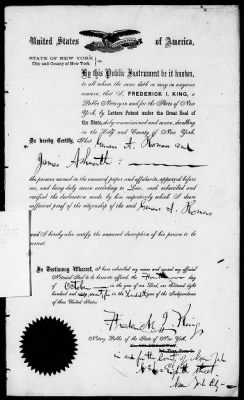 United States of America.
STATE OF NEW YORK
City and County of New York
By this Public Instrument be it known,
to all whom the same doth or may in anywise
concern, that I, FREDERICK I. KING, a
Public Notary in and for the State of New
York, by Letters Patent under the Great Seal of
the State, duly commissioned and sworn, dwelling
in the City and County of New York,
Do hereby Certify, That A. Romero and
James
the persons named in the annexed paper and affidavits, appeared before
me, and being duly sworn according to Law, each subscribed and
verified the declaration made by him respectively which I deem
sufficient proof of the citizenship of the said A. Romero
And I hereby also certify the annexed description of his person to be
correct.
In Testimony Whereof, I have subscribed my name and caused my official
Notarial Seal to be hereunto affixed, the
day of in the year of our Lord, one thousand eight
hundred and of the Independence
of these United States.
Frederick I. King
Notary Public of the State of New York
in and for the County of New York
Street
New York City